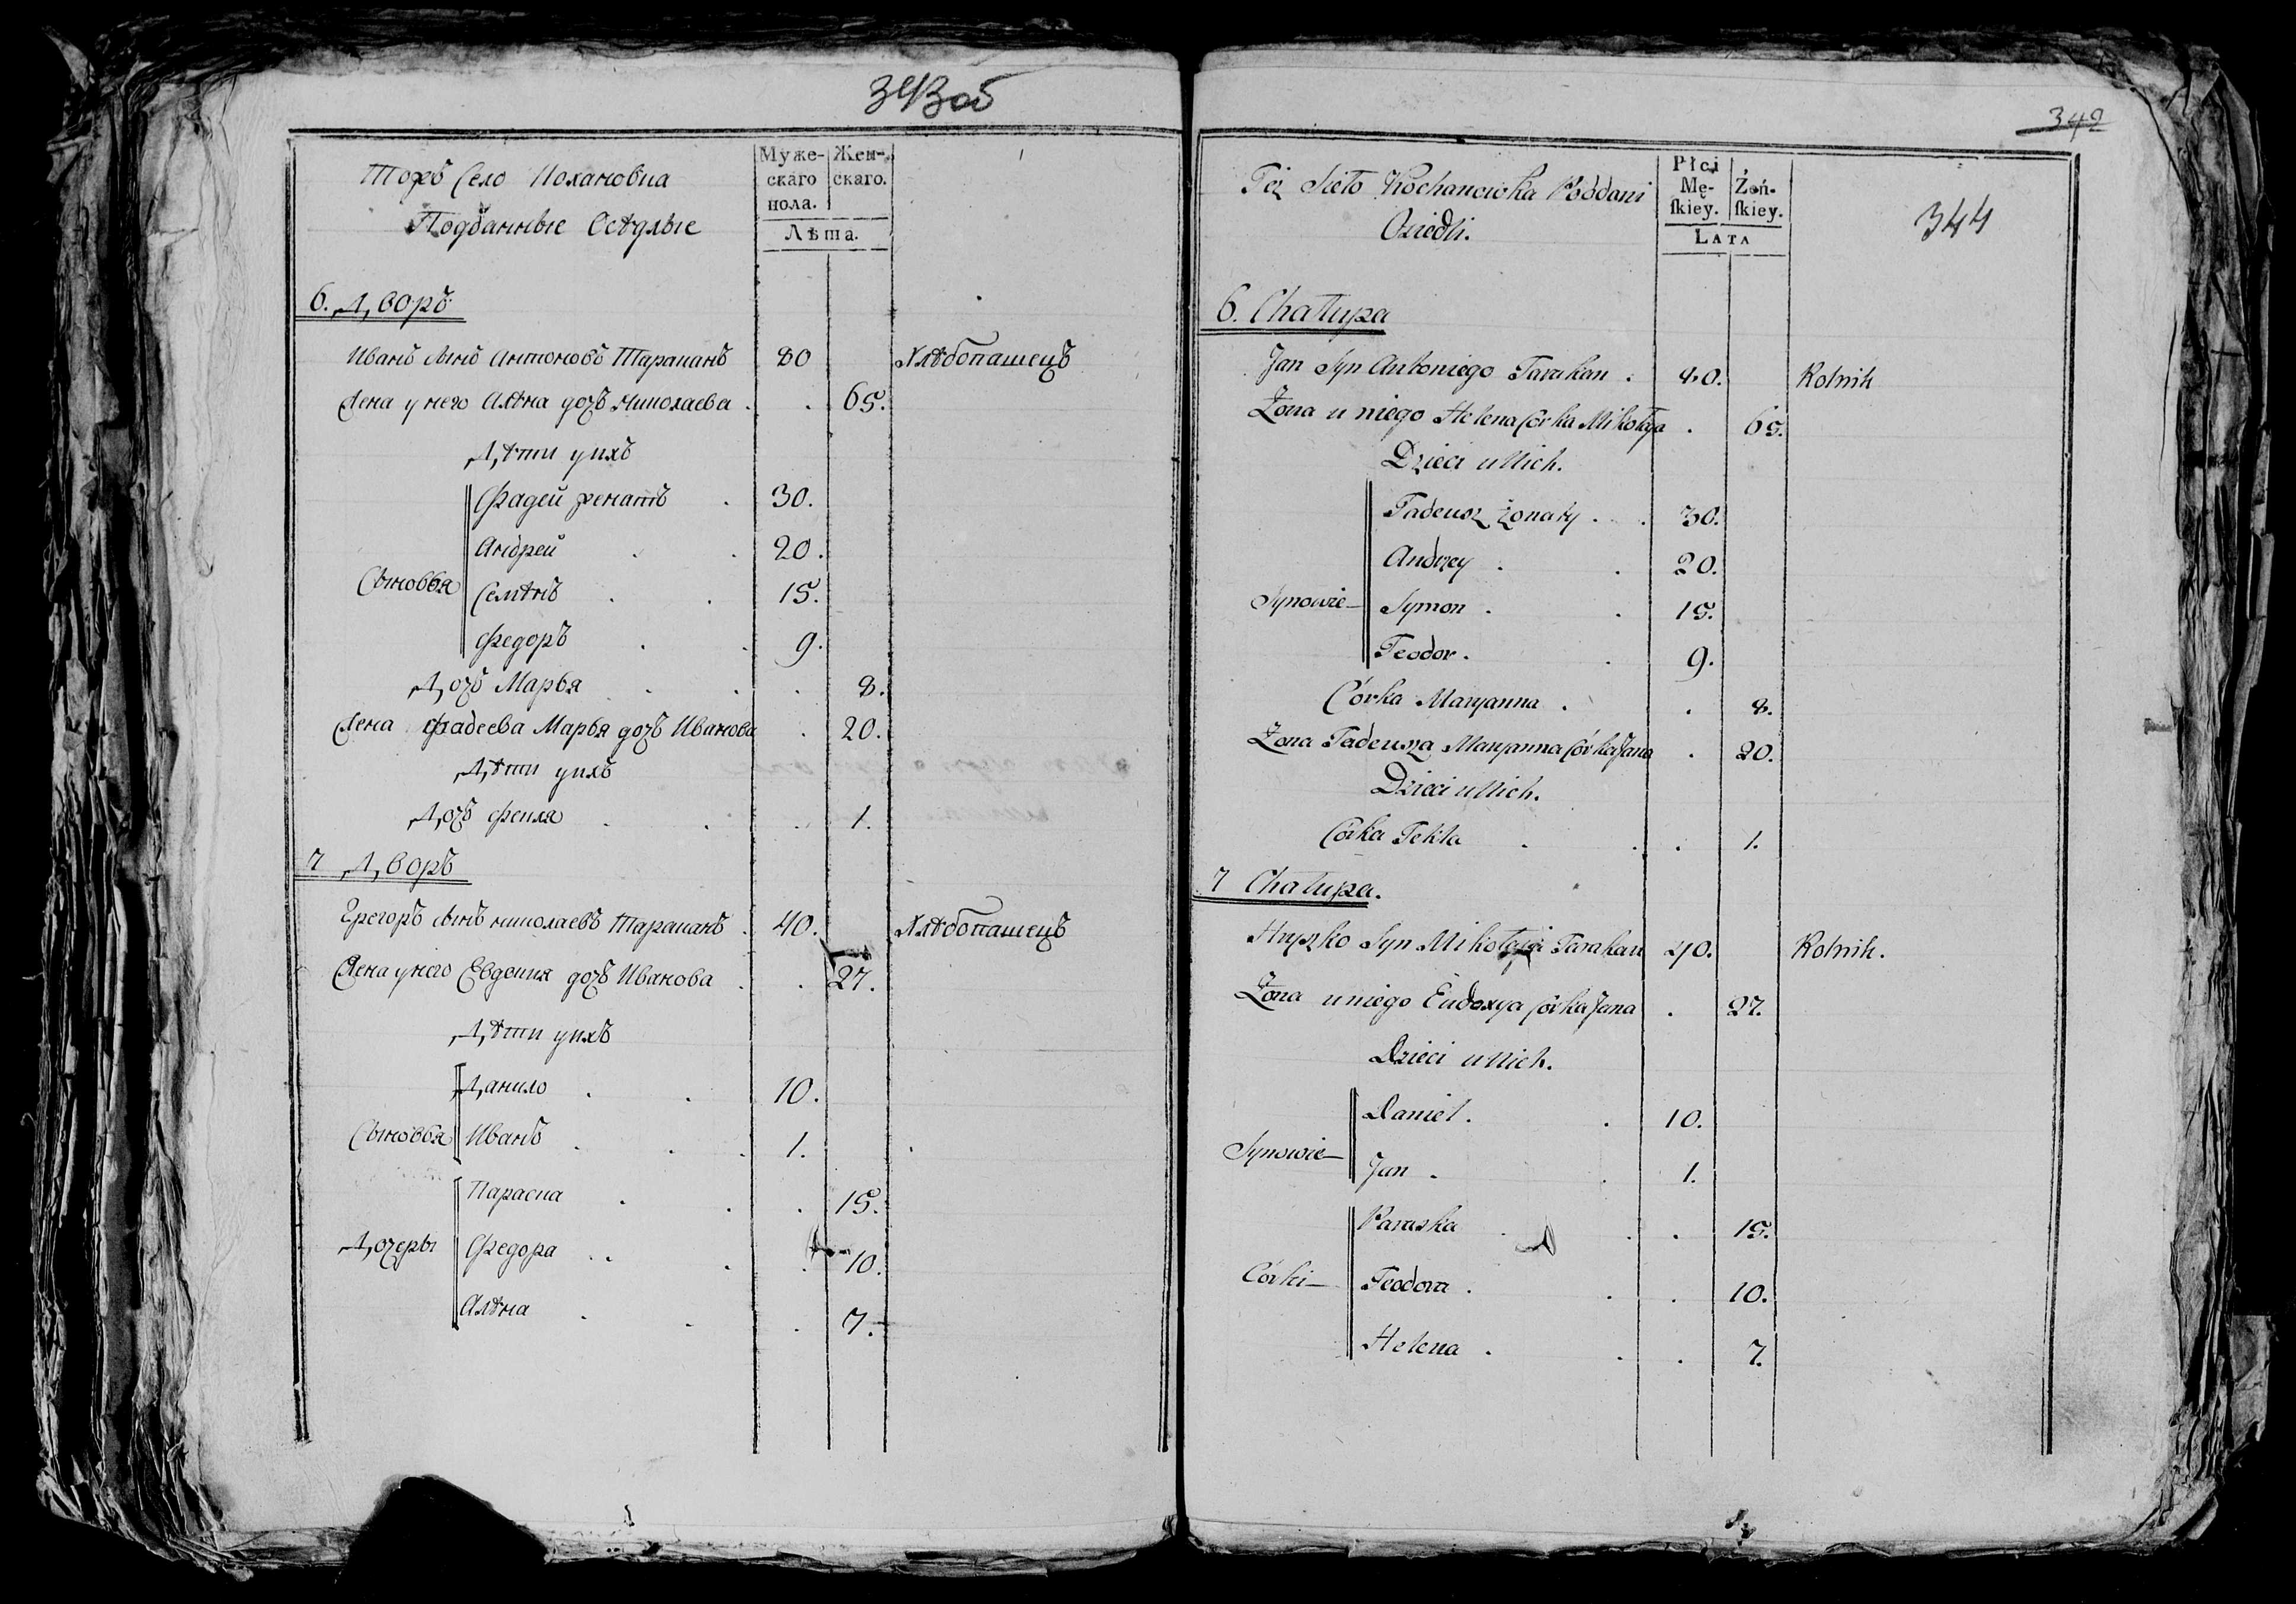 343 об
Тожъ Село Кохановка
Подданные Осѣдлые
Муже-
скаго
пола.
Жен-
скаго.
Лѣта.
6. Дворъ
Иванъ сынъ Антоновъ Тараканъ 80 Хлѣбопашецъ
Жена у него Алѣна дочъ Николаева . . 65.
Дѣти у нихъ
Сыновья
Фадей женатъ . 30.
Андрей . . 20.
Семѣнъ . . 15.
Федоръ . . 9.
Дочъ Марья . . . 8.
Жена Фадеева Марья дочъ Иванова . 20.
Дѣти у нихъ
Дочъ Фекла . . . 1.
7 Дворъ
Грегоръ сынъ николаевъ Тараканъ . 40. Хлѣбопашецъ
Жена у него Евдокия дочъ Иванова . . 27.
Дѣти у нихъ
Сыновья
Данило . . 10.
Иванъ . . . 1.
Дочеры
Параска . . . 15.
Федора . . . 10.
Алѣна . . . 7.
342
344
Też Sioło Kochanowka Poddani
Osiedli.
Płci
Mę-
ſkiey.
Żeń-
ſkiey.
Lata
6. Chałupa
Jan Syn Antoniego Tarakan . 80. Rolnik
Żona u niego Helena Córka Mikołaja . 65.
Dzieci u Nich.
Synowie
Tadeusz żonaty . . 30.
Andrzey . . 20.
Symon . . 15.
Teodor . . 9.
Córka Maryanna . . 8.
Żona Tadeusza Maryanna Córka Jana . 20.
Dzieci u Nich.
Córka Tekla . . . 1.
7 Chałupa.
Hryszko Syn Mikołaja Tarakan 40. Rolnik.
Żona u niego Eudoxya Córka Jana . 27.
Dzieci u Nich.
Synowie
Daniel . . 10.
Jan . . 1.
Córki
Paraska . . . 15.
Teodora . . . 10.
Helena . . . 7.